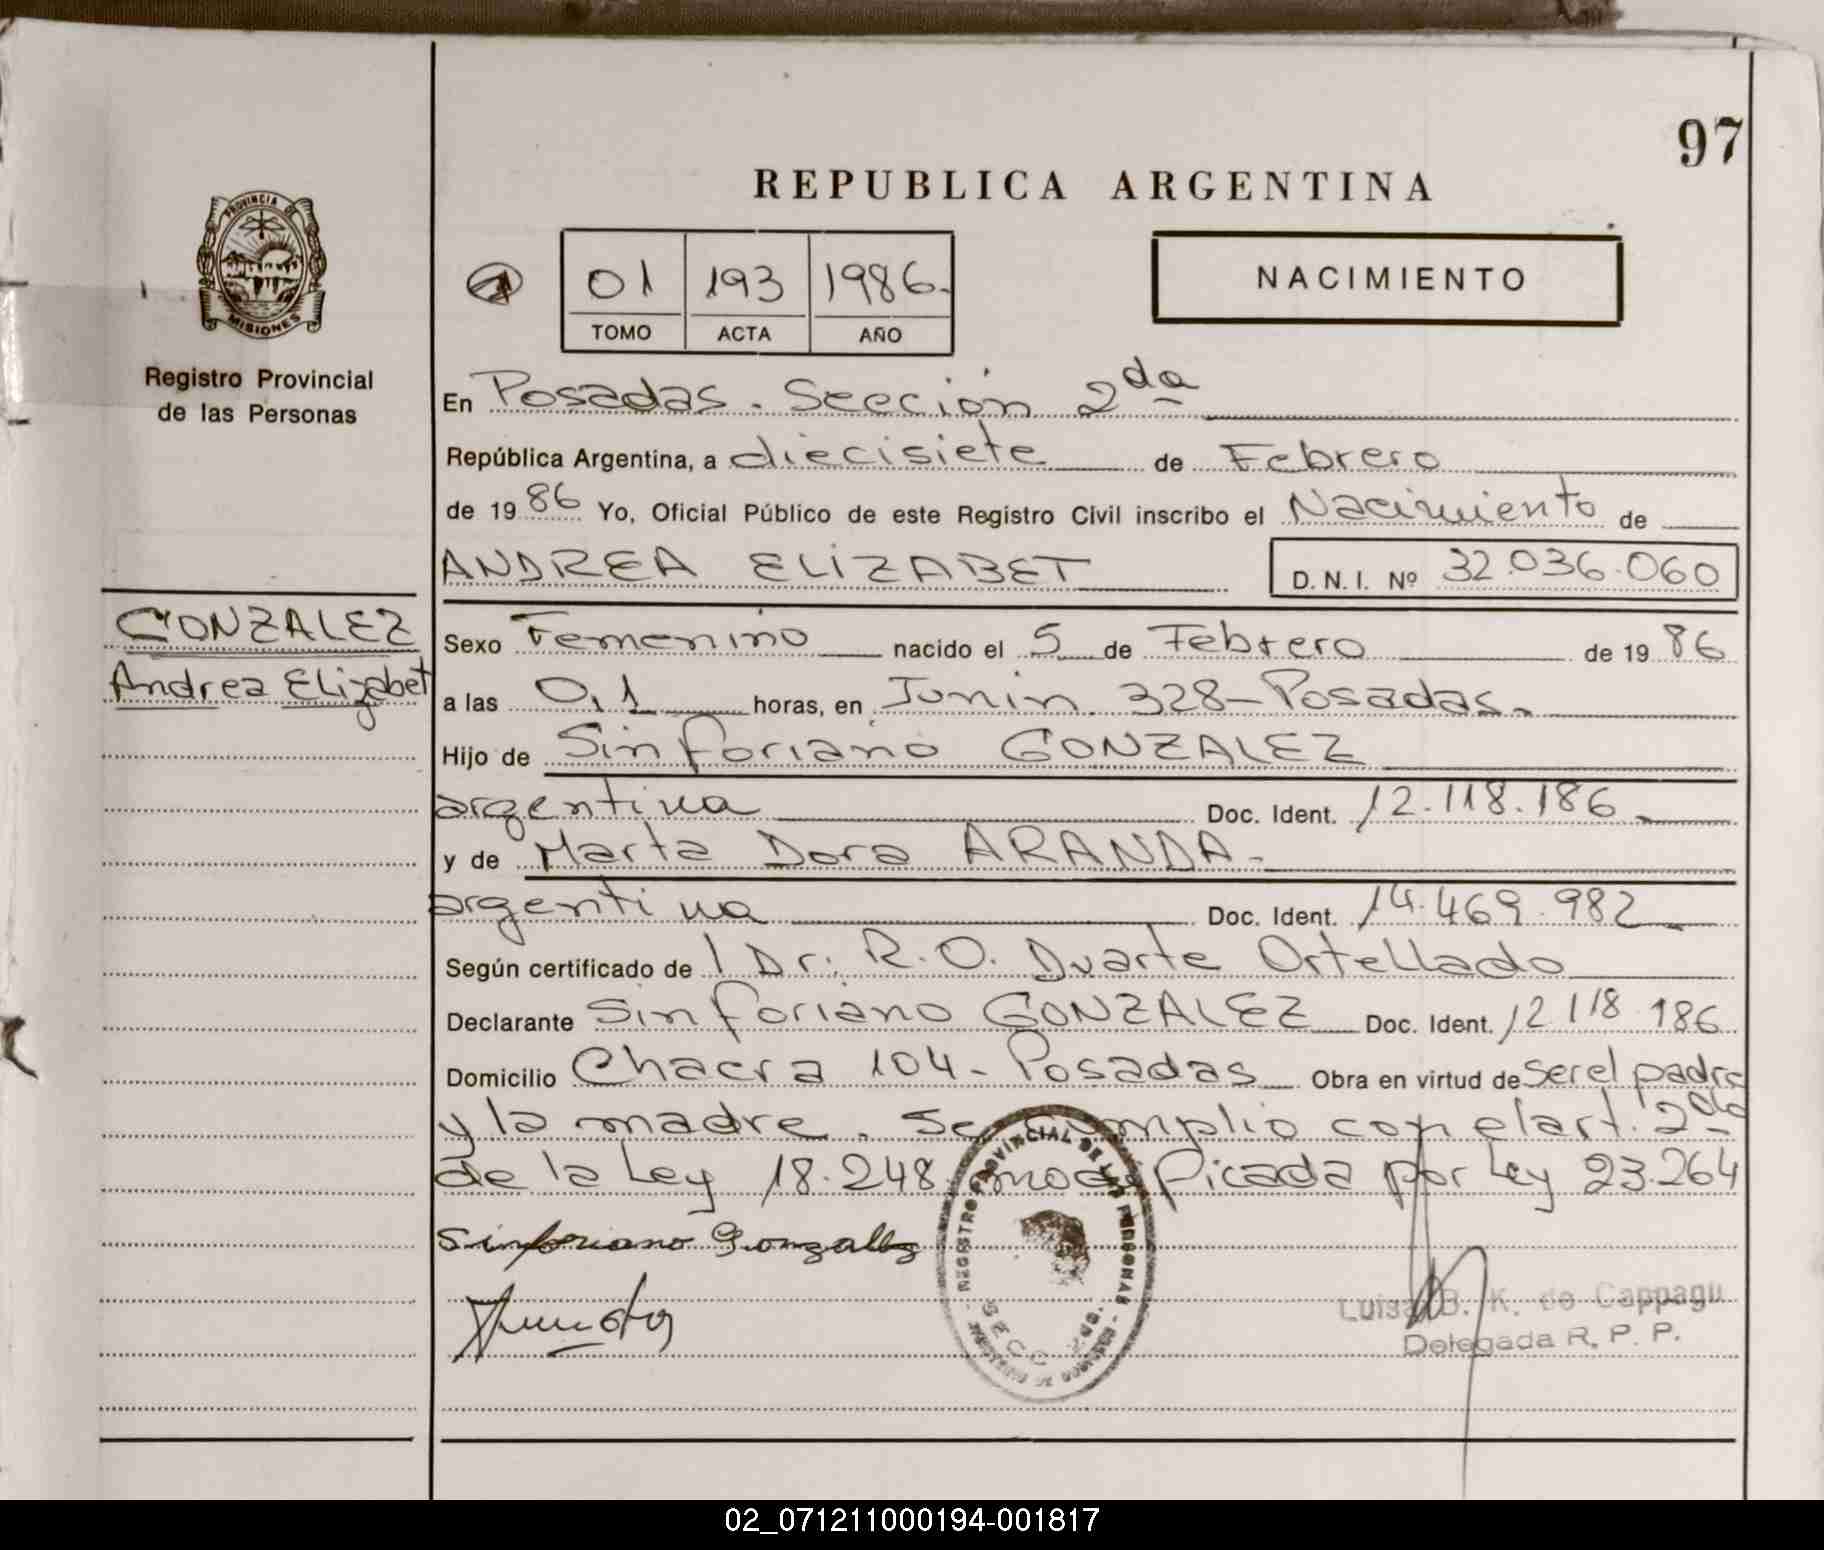 97
REPUBLICA ARGENTINA
PROVINCIA DE
MISIONES
Registro Provincial
de las Personas
01 193 1986.
TOMO ACTA AÑO
NACIMIENTO
En Posadas. Sección 2da
República Argentina, a diecisiete de Febrero
de 1986 Yo, Oficial Público de este Registro Civil inscribo el Nacimiento de
ANDREA ELIZABET D.N.I. Nº 32.036.060
GONZALEZ
Andrea Elizabet
Sexo Femenino nacido el 5 de Febrero de 1986
a las 0,1 horas, en Junin 328-Posadas.
Hijo de Sinforiano GONZALEZ
argentina Doc. Ident. 12.118.186
y de Marta Dora ARANDA-
argentina Doc. Ident. 14.469.982
Según certificado de l Dr. R.O. Duarte Ortellado
Declarante Sinforiano GONZALEZ Doc. Ident. 12 118 186
Domicilio Chacra 104-Posadas Obra en virtud de ser el padre
y la madre. Se cumplio con el art. 2do
de la Ley 18.248 modificada por Ley 23.264
Sinforiano Gonzalez
REGISTRO PROVINCIAL DE LAS PERSONAS
SECC. 2da.
Luisa B. K. de Cappagli
Delegada R. P. P.
02_071211000194-001817